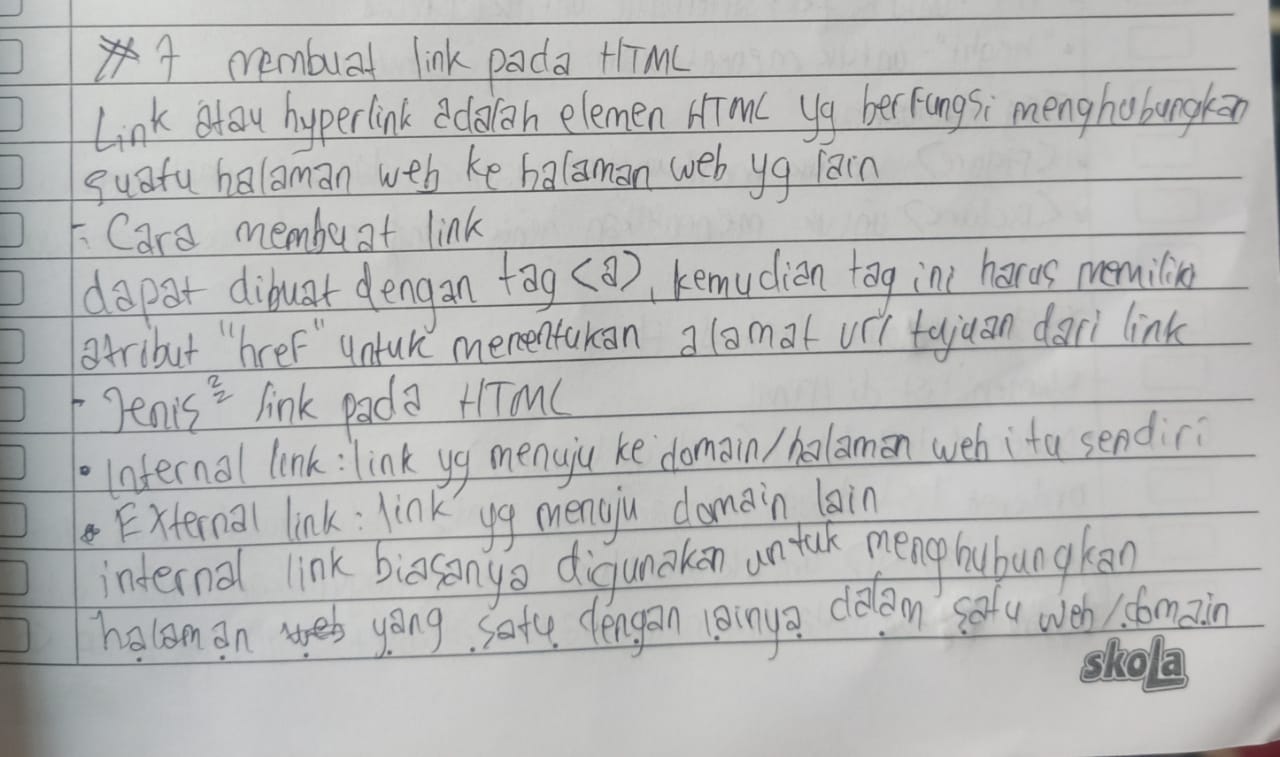 #7 membuat link pada HTML
Link atau hyperlink adalah elemen HTML yg berfungsi menghubungkan
suatu halaman web ke halaman web yg lain
- Cara membuat link
dapat dibuat dengan tag <a>, kemudian tag ini harus memiliki
atribut "href" untuk menentukan alamat url tujuan dari link
- Jenis² link pada HTML
• Internal link : link yg menuju ke domain/halaman web itu sendiri
• External link : link yg menuju domain lain
internal link biasanya digunakan untuk menghubungkan
halaman yang satu dengan lainya dalam satu web/domain
skola